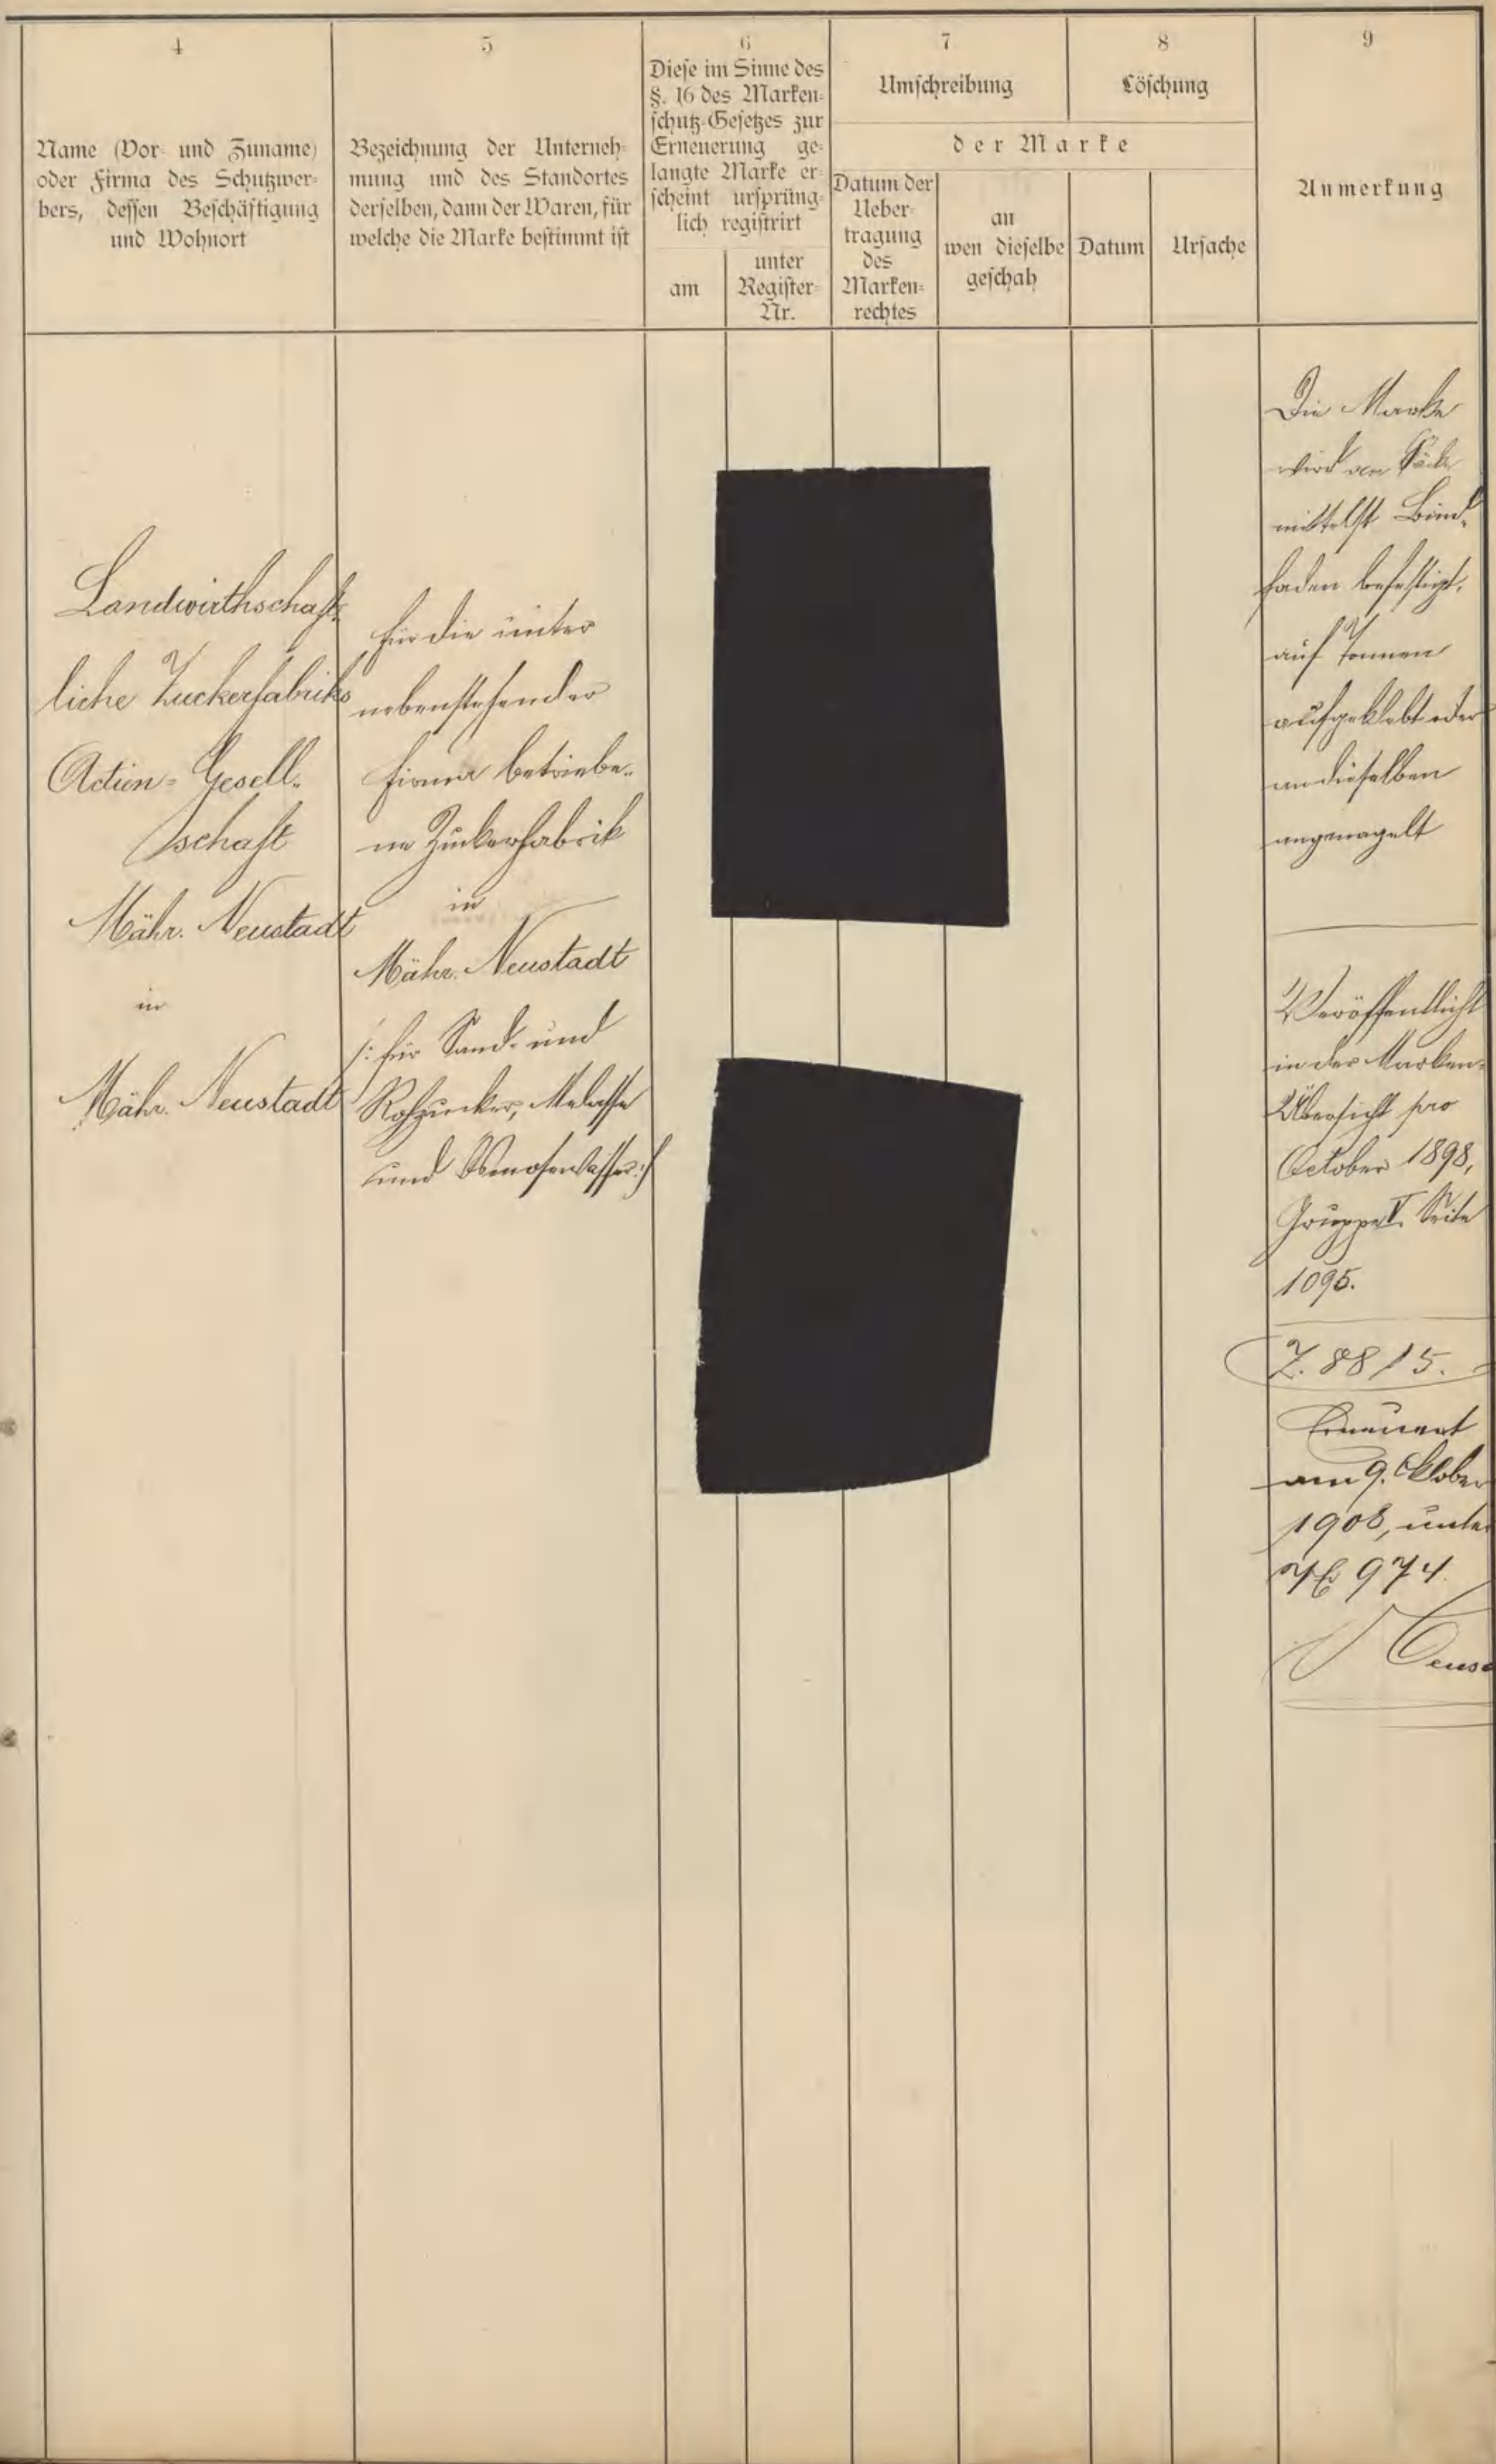 4
Name (Vor- und Zuname)
oder Firma des Schutzwer-
bers, dessen Beschäftigung
und Wohnort
5
Bezeichnung der Unterneh-
mung und des Standortes
derselben, dann der Waren, für
welche die Marke bestimmt ist
6
Diese im Sinne des
§. 16 des Marken-
schutz-Gesetzes zur
Erneuerung ge-
langte Marke er-
scheint ursprüng-
lich registrirt
am
unter
Register-
Nr.
7
Umschreibung
8
Löschung
der Marke
Datum der
Ueber-
tragung
des
Marken-
rechtes
an
wen dieselbe
geschah
Datum
Ursache
9
Anmerkung
Landwirthschaft-
liche Zuckerfabriks
Actien-Gesell-
schaft
Mähr. Neustadt
in
Mähr. Neustadt
für die unter
nebenstehender
Firma betriebe-
ne Zuckerfabrik
in
Mähr. Neustadt
/: für Sand- und
Rohzucker, Melasse
und Osmosewasser :/
Die Marke
wird an Säcke
mittelst Bind-
faden befestigt,
auf Tonnen
aufgeklebt oder
an dieselben
angenagelt
Veröffentlicht
in der Marken-
Übersicht pro
October 1898,
Gruppe V. Seite
1095.
Z. 8815.
Erneuert
am 9. Oktober
1908, unter
№ 974